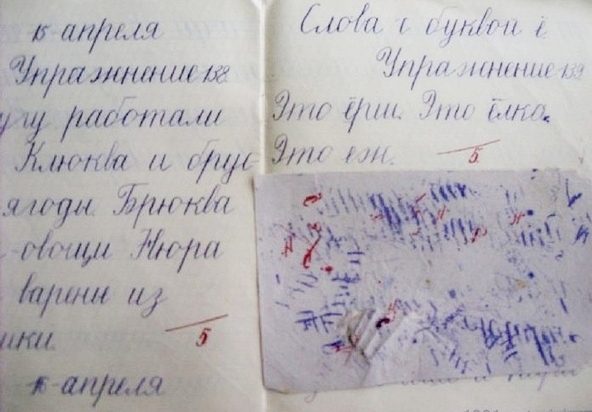 15 апреля
Упражнение 158
угу работали
Клюква и брус-
ягоды. Брюква
- овощи. Нюра
варене из
ики.
5
15 апреля
Слова с буквой ё
Упражнение 159
Это ёрш. Это ёлка.
Это еж.
5